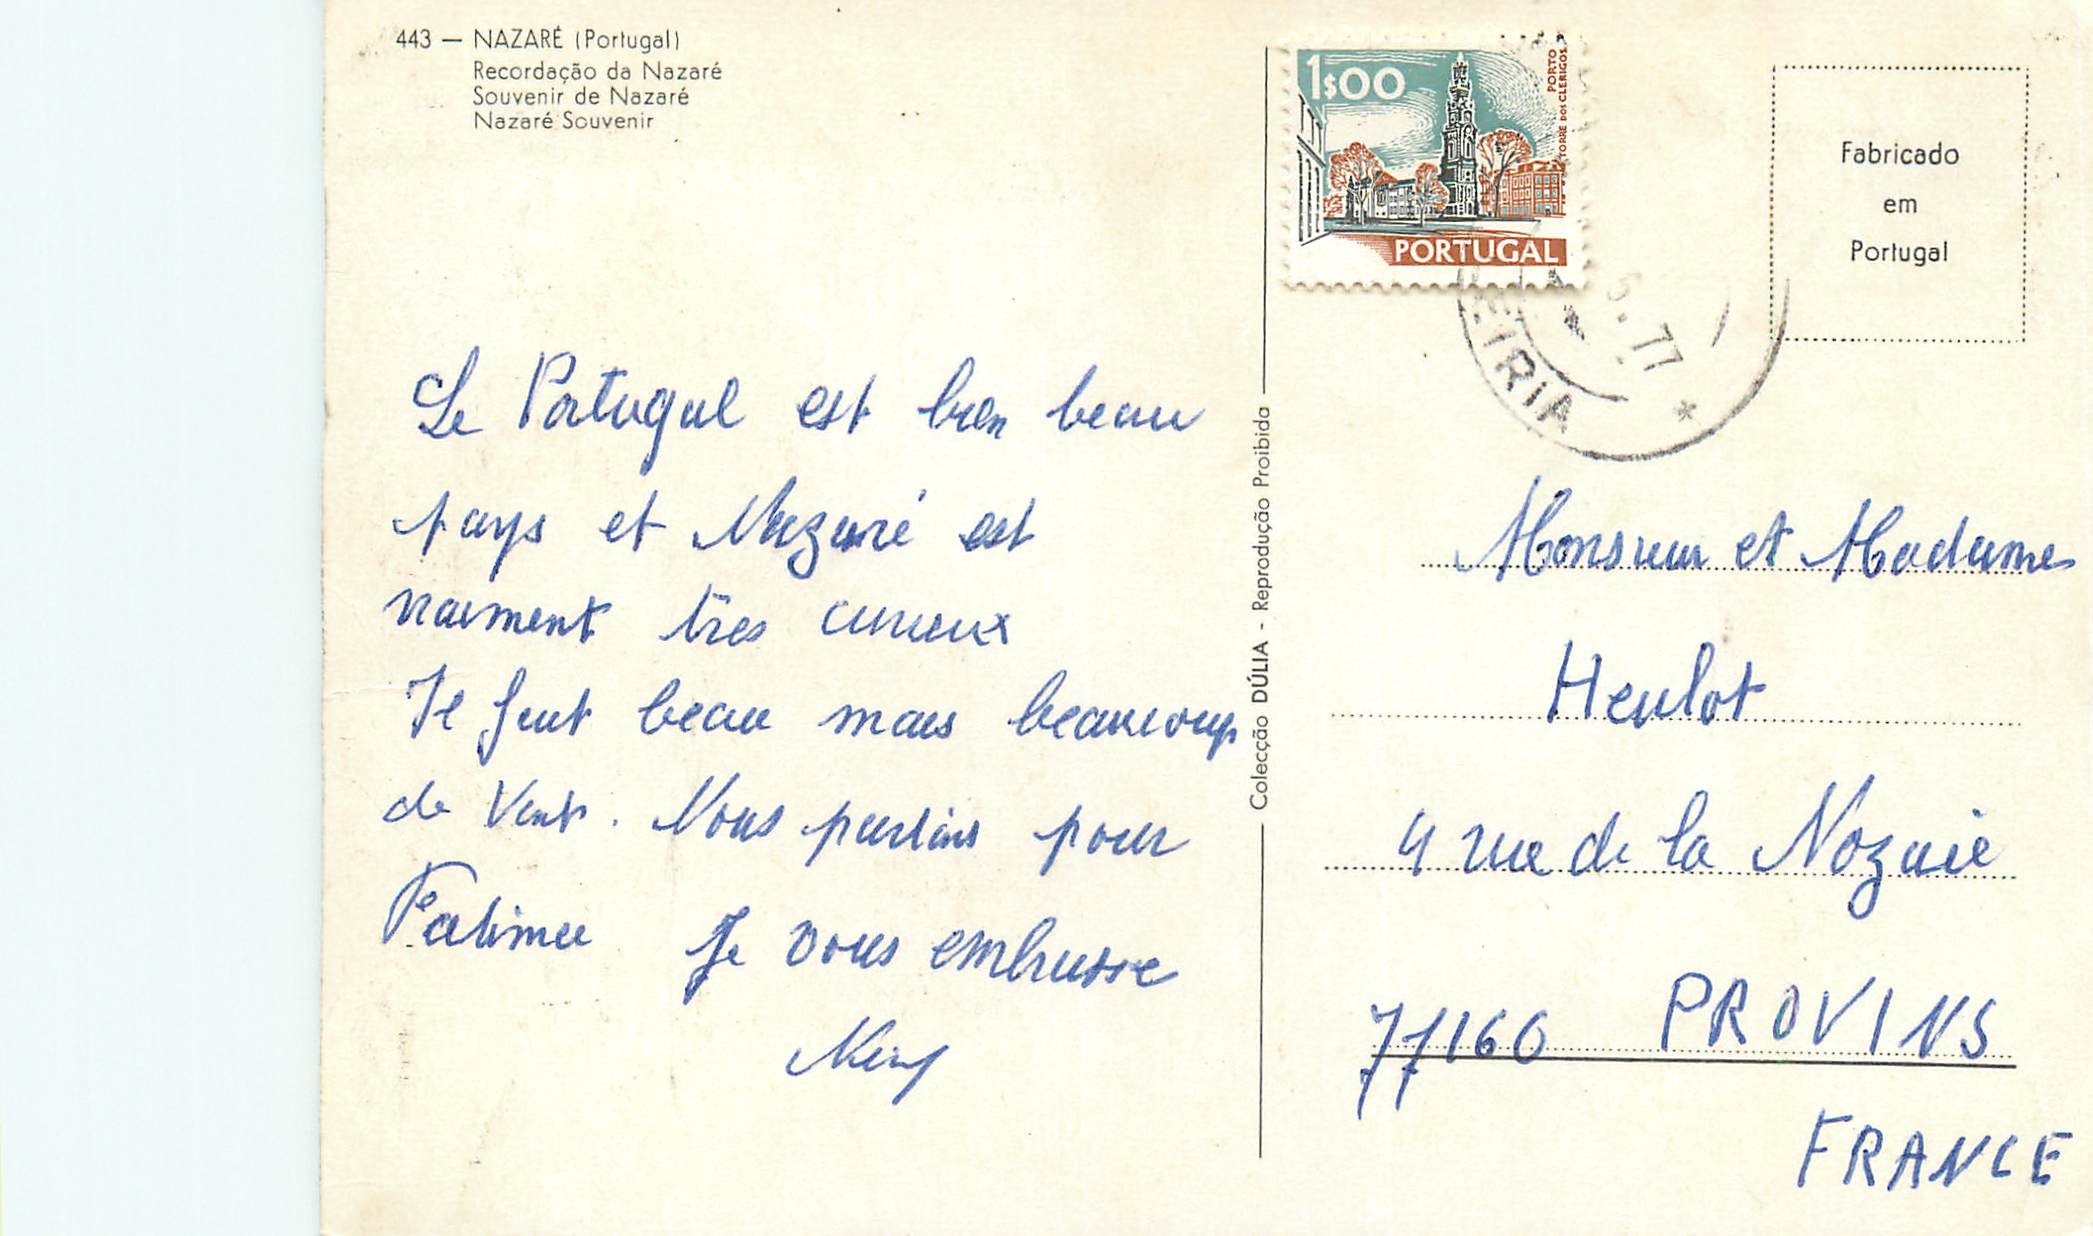 443 — NAZARÉ (Portugal)
Recordação da Nazaré
Souvenir de Nazaré
Nazaré Souvenir
Le Portugal est bien beau
pays et Nazaré est
vraiment très curieux
Il fait beau mais beaucoup
de vent. Nous partons pour
Fatima Je vous embrasse
Colecção DÚLIA - Reprodução Proibida
1$00
PORTO
TORRE DOS CLERIGOS
PORTUGAL
EIRIA
77
Fabricado
em
Portugal
Monsieur et Madame
Heulot
4 rue de la Nozaie
77160 PROVINS
FRANCE